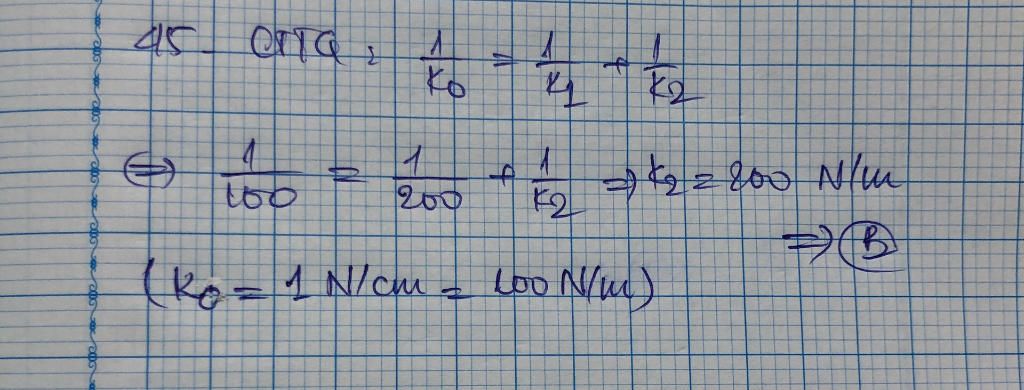 45- CTTQ: 1/K0 = 1/K1 + 1/K2
⇔ 1/100 = 1/200 + 1/K2 ⇒ K2 = 200 N/m
⇒ B
(K0 = 1 N/cm = 100 N/m)